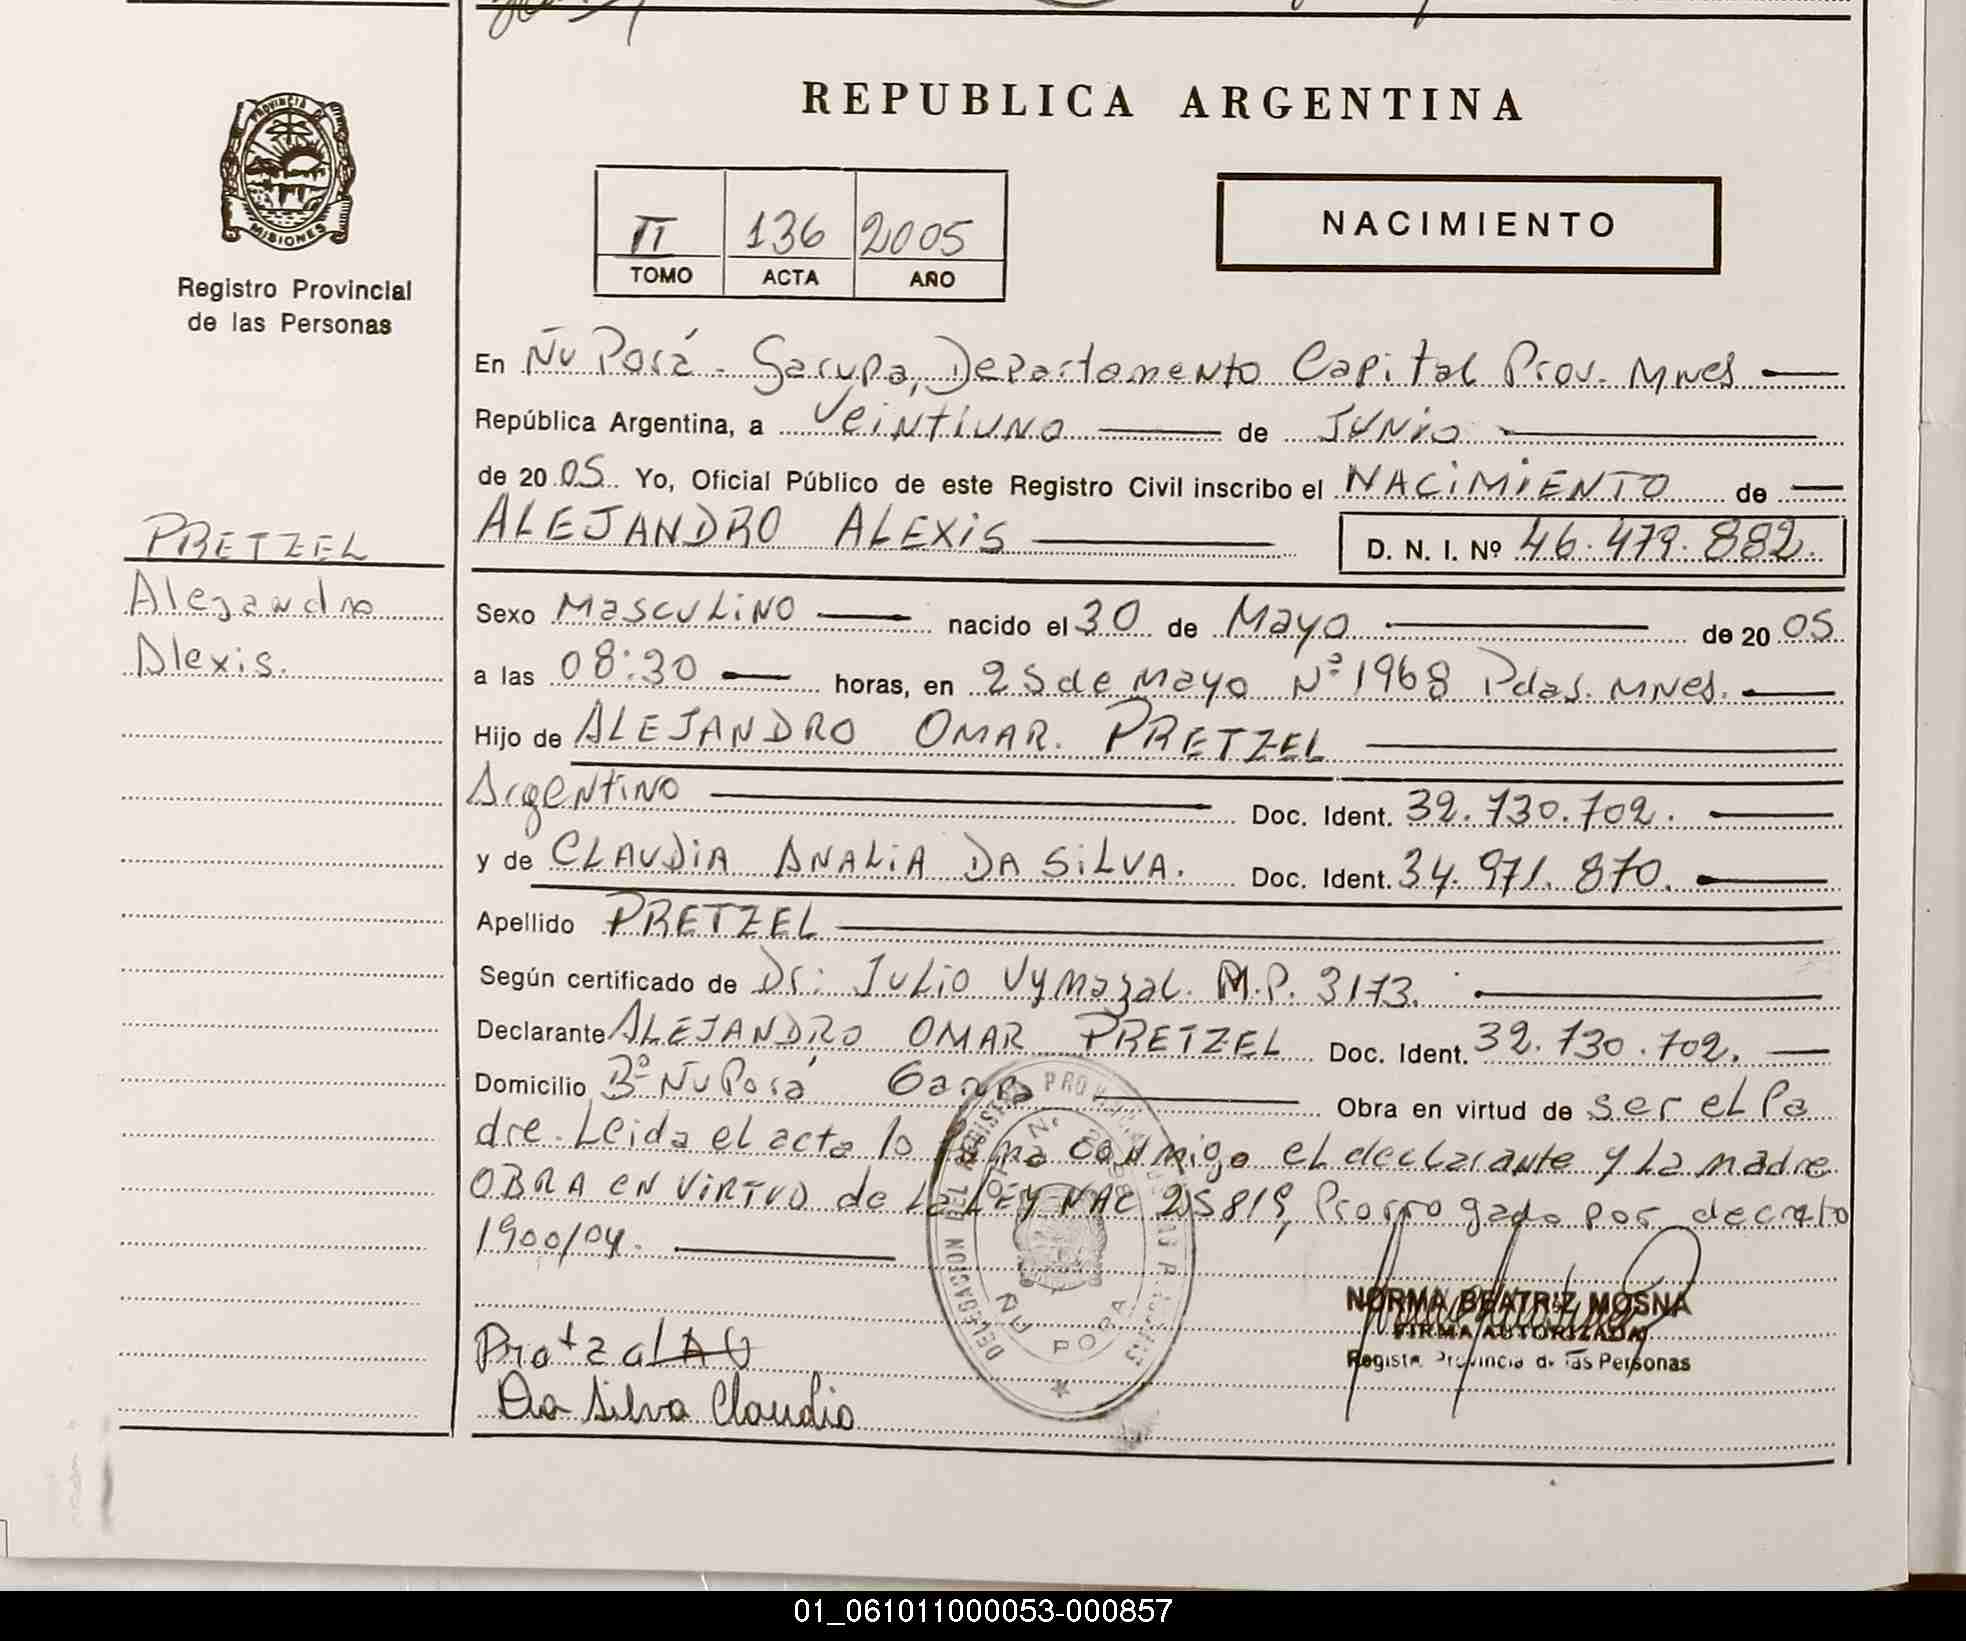 REPUBLICA ARGENTINA
PROVINCIA DE MISIONES
Registro Provincial
de las Personas
II 136 2005
TOMO ACTA AÑO
NACIMIENTO
En Ñu Porá - Garupa, Departamento Capital Prov. Mnes
República Argentina, a Veintiuno de Junio
de 2005 Yo, Oficial Público de este Registro Civil inscribo el NACIMIENTO de
ALEJANDRO ALEXIS D. N. I. Nº 46.479.882.
PRETZEL
Alejandro
Alexis.
Sexo Masculino nacido el 30 de Mayo de 2005
a las 08:30 horas, en 25 de mayo Nº 1968 Pdas. Mnes.
Hijo de ALEJANDRO OMAR. PRETZEL
Argentino Doc. Ident. 32.730.702.
y de CLAUDIA ANALIA DA SILVA. Doc. Ident. 34.971.870.
Apellido PRETZEL
Según certificado de Dr: Julio Vymazal. M.P. 3173.
Declarante ALEJANDRO OMAR PRETZEL Doc. Ident. 32.730.702.
Domicilio Bº Ñu Porá Garupa Obra en virtud de ser el Pa
dre. Leida el acta lo firma conmigo el declarante y La madre
OBRA en VIRTUD de La LEY NAC 25819, Prorrogado por decreto
1900/04.
DELEGACION DEL REGISTRO
ÑU PORA
NORMA BEATRIZ MOSNA
FIRMA AUTORIZADA
Registro Provincial de las Personas
Da Silva Claudia
01_061011000053-000857